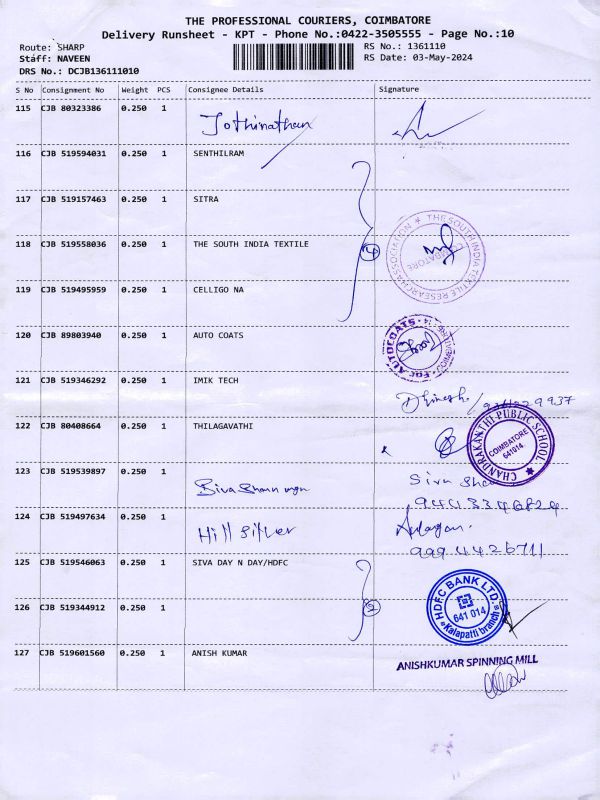 THE PROFESSIONAL COURIERS, COIMBATORE
Delivery Runsheet - KPT - Phone No.:0422-3505555 - Page No.:10
Route: SHARP
RS No.: 1361110
Staff: NAVEEN
RS Date: 03-May-2024
DRS No.: DCJB136111010
S No Consignment No Weight PCS Consignee Details Signature
115 CJB 80323386 0.250 1 Jothinathan
116 CJB 519594031 0.250 1 SENTHILRAM
117 CJB 519157463 0.250 1 SITRA
118 CJB 519558036 0.250 1 THE SOUTH INDIA TEXTILE
4
THE SOUTH INDIA TEXTILE RESEARCH ASSOCIATION
COIMBATORE
119 CJB 519495959 0.250 1 CELLIGO NA
120 CJB 89803940 0.250 1 AUTO COATS
FOR AUTOCOATS COIMBATORE-14
121 CJB 519346292 0.250 1 IMIK TECH
Dhinesh
122 CJB 80408664 0.250 1 THILAGAVATHI
CHANDRAKANTHI PUBLIC SCHOOL
COIMBATORE
641014
123 CJB 519539897 0.250 1
9443346824
124 CJB 519497634 0.250 1 Hill Silver
9994426711
125 CJB 519546063 0.250 1 SIVA DAY N DAY/HDFC
126 CJB 519344912 0.250 1
2
HDFC BANK LTD.
641 014
Kalapatti branch
127 CJB 519601560 0.250 1 ANISH KUMAR
ANISHKUMAR SPINNING MILL